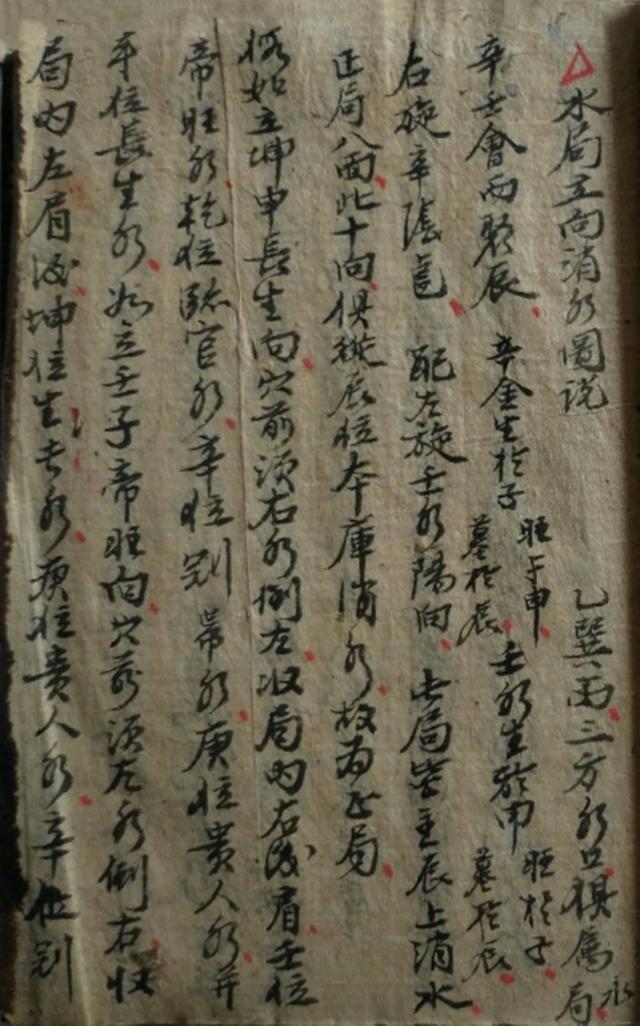 水局立向消水圖说 乙巽丙三方水口俱属水局
辛壬會而聚辰 辛金生於子旺于申墓於辰 壬水生於申旺於子墓於辰
右旋辛陰龍 配左旋壬水陽向 此局皆主辰上消水
正局八面此十向俱從辰位本庫消水故為正局
假如立坤申長生向穴前须右水倒左收局内右後肩壬位
帝旺水乾位臨官水辛位冠帶水庚位貴人水并
辛位長生水如立壬子帝旺向穴前须左水倒右收
局内左肩後坤位生方水庚位貴人水辛位冠